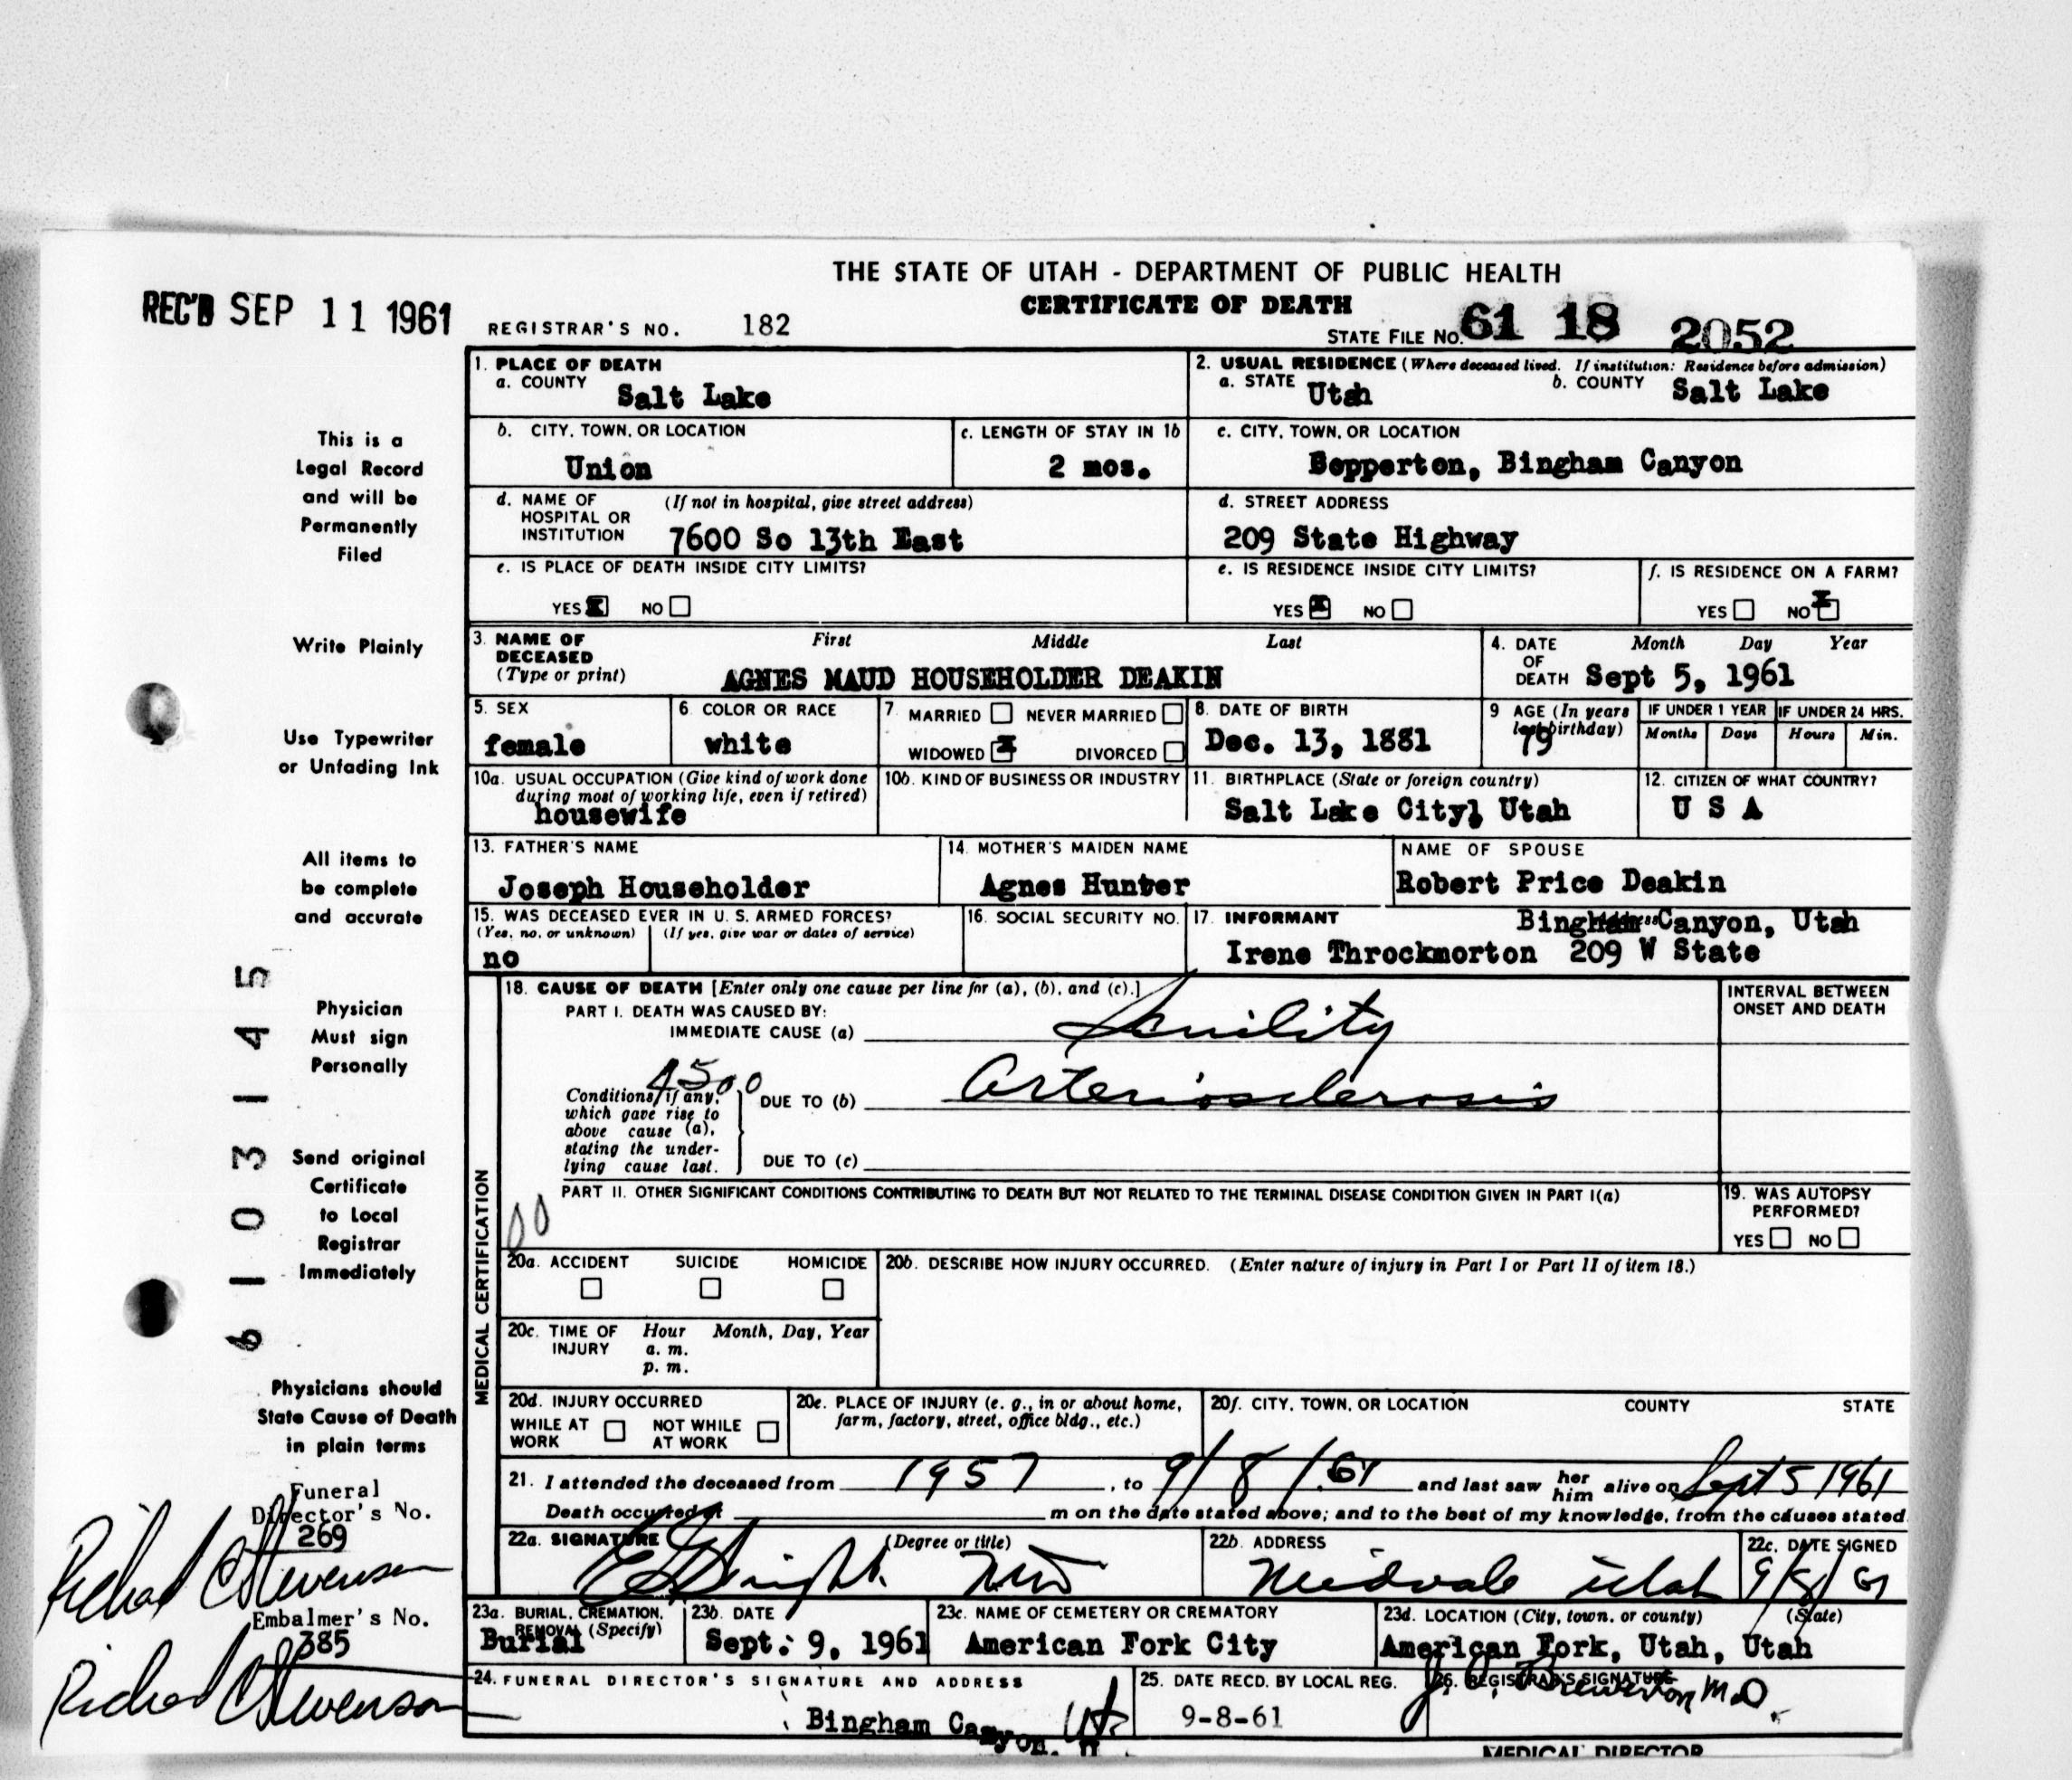 THE STATE OF UTAH - DEPARTMENT OF PUBLIC HEALTH
CERTIFICATE OF DEATH
REC'D SEP 11 1961
REGISTRAR'S NO. 182
STATE FILE NO. 61 18 2052
This is a
Legal Record
and will be
Permanently
Filed
Write Plainly
Use Typewriter
or Unfading Ink
All items to
be complete
and accurate
Physician
Must sign
Personally
Send original
Certificate
to Local
Registrar
Immediately
Physicians should
State Cause of Death
in plain terms
Funeral
Director's No.
269
Richard C Stevenson
Embalmer's No.
385
Richard C Stevenson
6 1 0 3 1 4 5
1. PLACE OF DEATH
a. COUNTY Salt Lake
2. USUAL RESIDENCE (Where deceased lived. If institution: Residence before admission)
a. STATE Utah b. COUNTY Salt Lake
b. CITY, TOWN, OR LOCATION
Union
c. LENGTH OF STAY IN 1b
2 mos.
c. CITY, TOWN, OR LOCATION
Bopperton, Bingham Canyon
d. NAME OF (If not in hospital, give street address)
HOSPITAL OR
INSTITUTION 7600 So 13th East
d. STREET ADDRESS
209 State Highway
e. IS PLACE OF DEATH INSIDE CITY LIMITS?
YES X NO
e. IS RESIDENCE INSIDE CITY LIMITS?
YES X NO
f. IS RESIDENCE ON A FARM?
YES NO X
3. NAME OF DECEASED (Type or print)
First Middle Last
AGNES MAUD HOUSEHOLDER DEAKIN
4. DATE OF DEATH Month Day Year
Sept 5, 1961
5. SEX
female
6. COLOR OR RACE
white
7. MARRIED NEVER MARRIED
WIDOWED X DIVORCED
8. DATE OF BIRTH
Dec. 13, 1881
9 AGE (In years last birthday)
79
IF UNDER 1 YEAR
Months Days
IF UNDER 24 HRS.
Hours Min.
10a. USUAL OCCUPATION (Give kind of work done
during most of working life, even if retired)
housewife
10b. KIND OF BUSINESS OR INDUSTRY
11. BIRTHPLACE (State or foreign country)
Salt Lake City, Utah
12. CITIZEN OF WHAT COUNTRY?
U S A
13. FATHER'S NAME
Joseph Householder
14. MOTHER'S MAIDEN NAME
Agnes Hunter
NAME OF SPOUSE
Robert Price Deakin
15. WAS DECEASED EVER IN U. S. ARMED FORCES?
(Yes, no, or unknown) (If yes, give war or dates of service)
no
16. SOCIAL SECURITY NO.
17. INFORMANT Address
Bingham Canyon, Utah
Irene Throckmorton 209 W State
MEDICAL CERTIFICATION
18. CAUSE OF DEATH [Enter only one cause per line for (a), (b), and (c).]
PART I. DEATH WAS CAUSED BY:
IMMEDIATE CAUSE (a) Senility
INTERVAL BETWEEN
ONSET AND DEATH
4500
Conditions, if any,
which gave rise to
above cause (a),
stating the under-
lying cause last.
DUE TO (b) Arteriosclerosis
DUE TO (c)
PART II. OTHER SIGNIFICANT CONDITIONS CONTRIBUTING TO DEATH BUT NOT RELATED TO THE TERMINAL DISEASE CONDITION GIVEN IN PART I(a)
00
19. WAS AUTOPSY
PERFORMED?
YES NO
20a. ACCIDENT SUICIDE HOMICIDE
20b. DESCRIBE HOW INJURY OCCURRED. (Enter nature of injury in Part I or Part II of item 18.)
20c. TIME OF INJURY Hour Month, Day, Year
a. m.
p. m.
20d. INJURY OCCURRED
WHILE AT WORK NOT WHILE AT WORK
20e. PLACE OF INJURY (e. g., in or about home,
farm, factory, street, office bldg., etc.)
20f. CITY, TOWN, OR LOCATION COUNTY STATE
21. I attended the deceased from 1957, to 9/8/61 and last saw her him alive on Sept 5 1961
Death occurred at m on the date stated above; and to the best of my knowledge, from the causes stated.
22a. SIGNATURE (Degree or title)
MD
22b. ADDRESS
Midvale Utah
22c. DATE SIGNED
9/8/61
23a. BURIAL, CREMATION,
REMOVAL (Specify)
Burial
23b. DATE
Sept. 9, 1961
23c. NAME OF CEMETERY OR CREMATORY
American Fork City
23d. LOCATION (City, town, or county) (State)
American Fork, Utah, Utah
24. FUNERAL DIRECTOR'S SIGNATURE AND ADDRESS
Bingham Canyon, U
Ut.
25. DATE RECD. BY LOCAL REG.
9-8-61
26. REGISTRAR'S SIGNATURE
M.D.
MEDICAL DIRECTOR